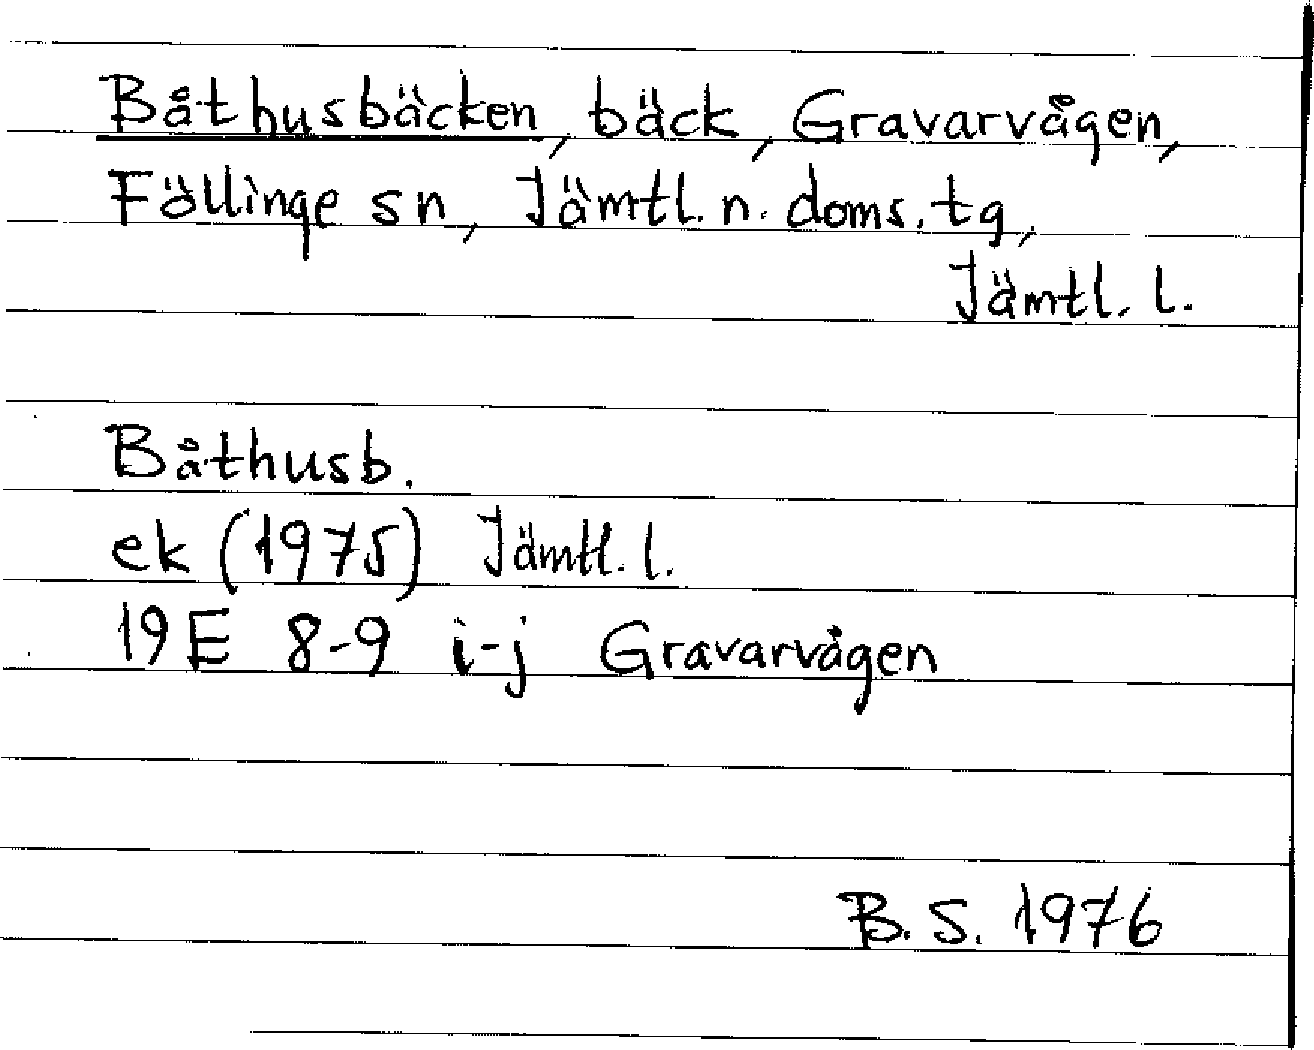 Båthusbäcken, bäck, Gravarvågen,
Föllinge sn, Jämtl. n. doms. tg,
Jämtl. l.
Båthusb.
ek (1975) Jämtl. l.
19 E 8-9 i-j Gravarvågen
B. S. 1976